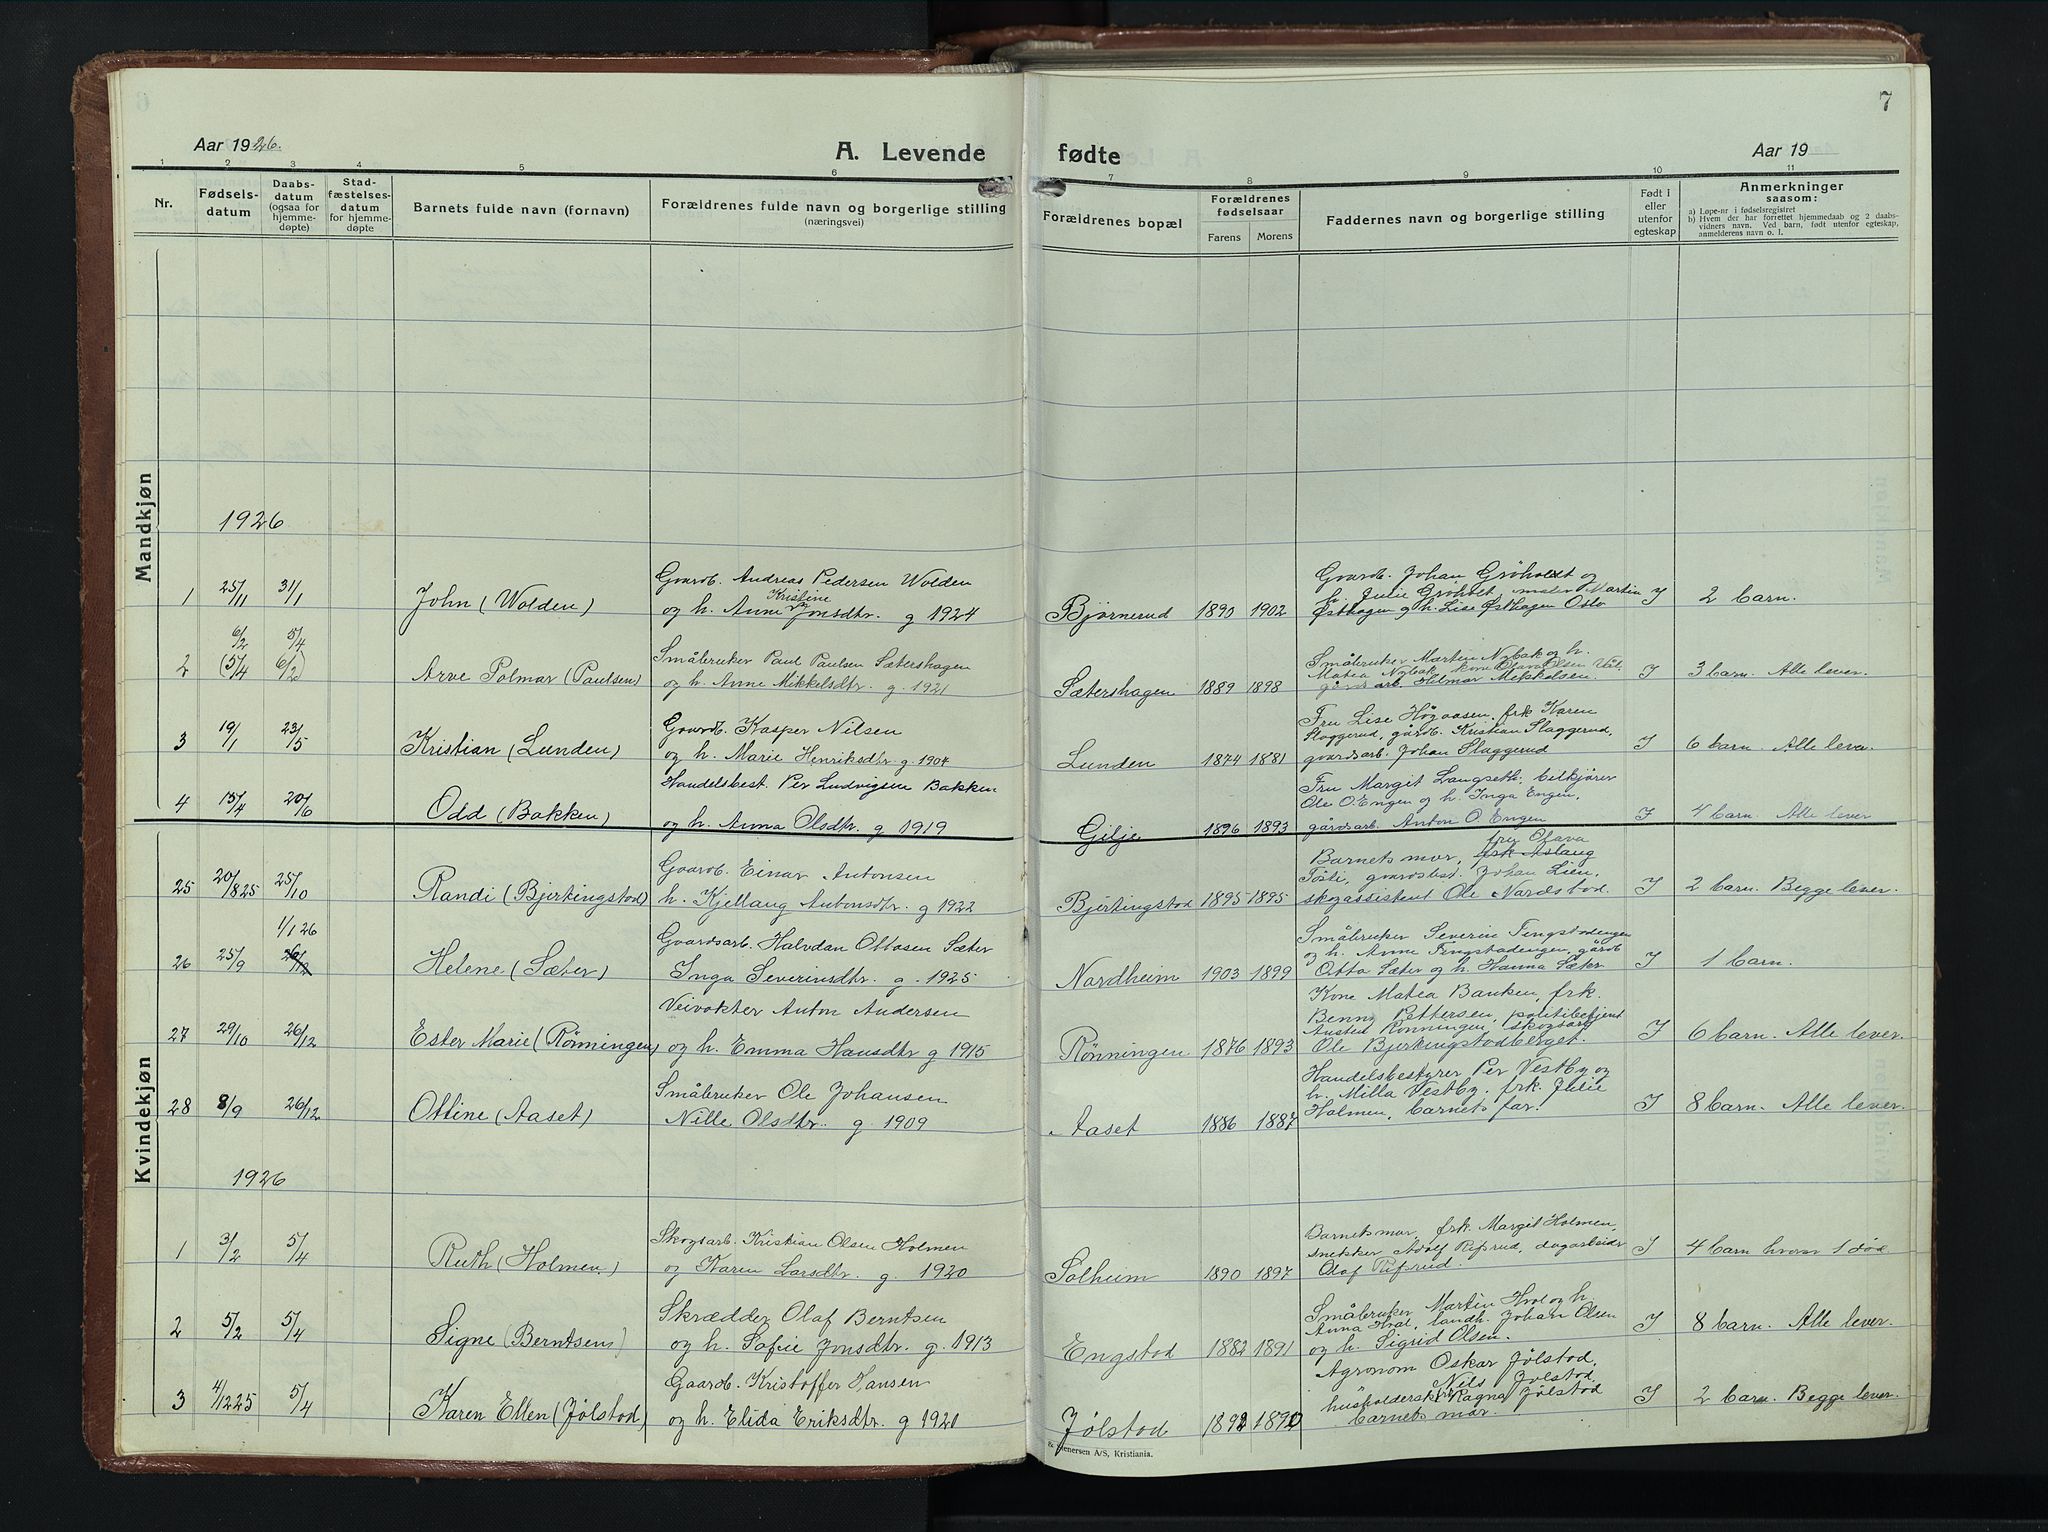 6
7
Aar 1926.
A. Levende
fødte
Aar 19
1 2 3 4 5 6 7 8 9 10 11
Nr.
Fødsels-
datum
Daabs-
datum
(ogsaa for
hjemme-
døpte)
Stad-
fæstelses-
datum
for hjemme-
døpte
Barnets fulde navn (fornavn)
Forældrenes fulde navn og borgerlige stilling
(næringsvei)
Forældrenes bopæl
Forældrenes
fødselsaar
Farens Morens
Faddernes navn og borgerlige stilling
Født i
eller
utenfor
egteskap
Anmerkninger
saasom:
a) Løpe-nr i fødselsregistret
b) Hvem der har forrettet hjemmedaab og 2 daabs-
vidners navn. Ved barn, født utenfor egteskap,
anmelderens navn o. l.
Mandkjøn
1926
1 25/11 31/1 John (Wolden)
Gaardb. Andreas Pedersen Wolden
og h. Anne Kristine Jonsdtr. g 1924
Bjørnerud 1890 1902
Gaardb. Johan Gröholdt og
h. Julie Gröholt, maler Martin
Østhagen og h. Lise Østhagen Oslo
I 2 barn.
2 6/2 5/4
(5/4 6/2) Arve Polmar (Paulsen)
Småbruker Paul Paulsen Sætershagen
og h. Anne Mikkelsdtr. g. 1921
Sætershagen 1889 1898
Småbruker Marten Nybak og h.
Matea Nybak, kone Olava Olsen
gårdsarb. Hilmar
I 3 barn. Alle lever.
3 19/1 23/5 Kristian (Lunden)
Gaardb. Kasper Nilsen
og h. Marie Henriksdtr. g. 1904
Lunden 1874 1881
Fru Lise Högaasen, frk Karen
Slaggerud, gårdb. Kristian Slaggerud,
gaardsarb. Johan Slaggerud
I 6 barn. Alle lever.
4 15/4 20/6 Odd (Bakken)
Handelsbest. Per Ludvigsen Bakken
og h. Anna Olsdtr. g 1919
Gilje 1896 1893
Fru Margit Langseth, bilkjører
Ole O. Engen og h. Inga Engen,
gårdsarb. Anton O. Engen
I 4 barn. Alle lever
Kvindekjøn
25 20/8 25 25/10 Randi (Bjertingstad)
Gaardb. Einar Antonsen
h. Kjellaug Antonsdtr. g 1922
Bjertingstad 1895 1895
fru Olava
Barnets mor, frk Aslaug
Tösti, gaardsbest. Johan Lien,
skogassistent Ole Nordstod.
I 2 barn. Begge lever.
26 25/9 1/1 26 Helene (Sæter)
Gaardsarb. Halvdan Ottosen Sæter
Inga Severinsdtr. g. 1925
Nordheim 1903 1899
Småbruker Severin Tingstadengen
og h. Anne Tingstadengen, gårdb
Otto Sæter og h. Hanna Sæter
I 1 barn.
27 29/10 26/12 Ester Marie (Rønningen)
Veivokter Anton Andersen
og h. Emma Hansdtr g 1915
Rønningen 1876 1893
Kone Matea Banken, frk.
Benny Pettersen, politibetjent
Austed Rönningen, skogsarb
Ole Bjertingstadberget.
I 6 barn. Alle lever.
28 8/9 26/12 Ottine (Aaset)
Småbruker Ole Johansen
Nille Olsdtr. g. 1909
Aaset 1886 1887
Handelsbestyrer Per Vestby og
h. Milla Vestby, frk. Julie
Holmen, barnets far.
I 8 barn. Alle lever.
1926
1 3/2 5/4 Ruth (Holmen)
Skogsarb. Kristian Olsen Holmen
og Karen Larsdtr. g. 1920
Solheim 1890 1897
Barnets mor, frk. Margit Holmen,
snekker Adolf Ruprud, dagarbeider
Olaf Ruprud.
I 4 barn hvorav 1 död
2 5/2 5/4 Signe (Berntsen)
Skrædder Olaf Berntsen
og h. Sofie Jonsdtr. g. 1913
Engstad 1882 1891
Småbruker Martin Hval og h.
Anna Hval, landh. Johan Olsen
og h. Sigrid Olsen.
I 8 barn. Alle lever.
3 4/12 25 5/4 Karen Ellen (Jølstad)
Gaardb. Kristoffer Hansen
og h. Elida Eriksdtr. g 1920
Jølstad 1892 1890
Agronom Oskar Jølstad,
Nils Jølstad
husholderske Ragna Jølstad
barnets mor.
I 2 barn. Begge lever.
A/S, Kristiania.